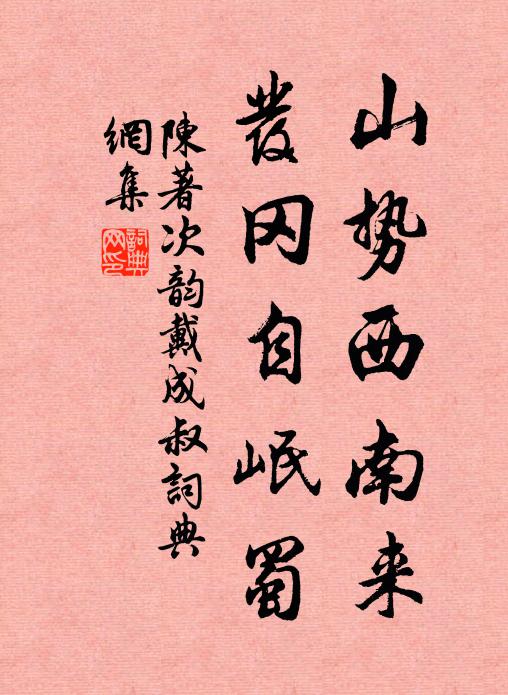 山势西南来
發冈自岷蜀
陳著次韵戴成叔詞典
網集
詞典網印